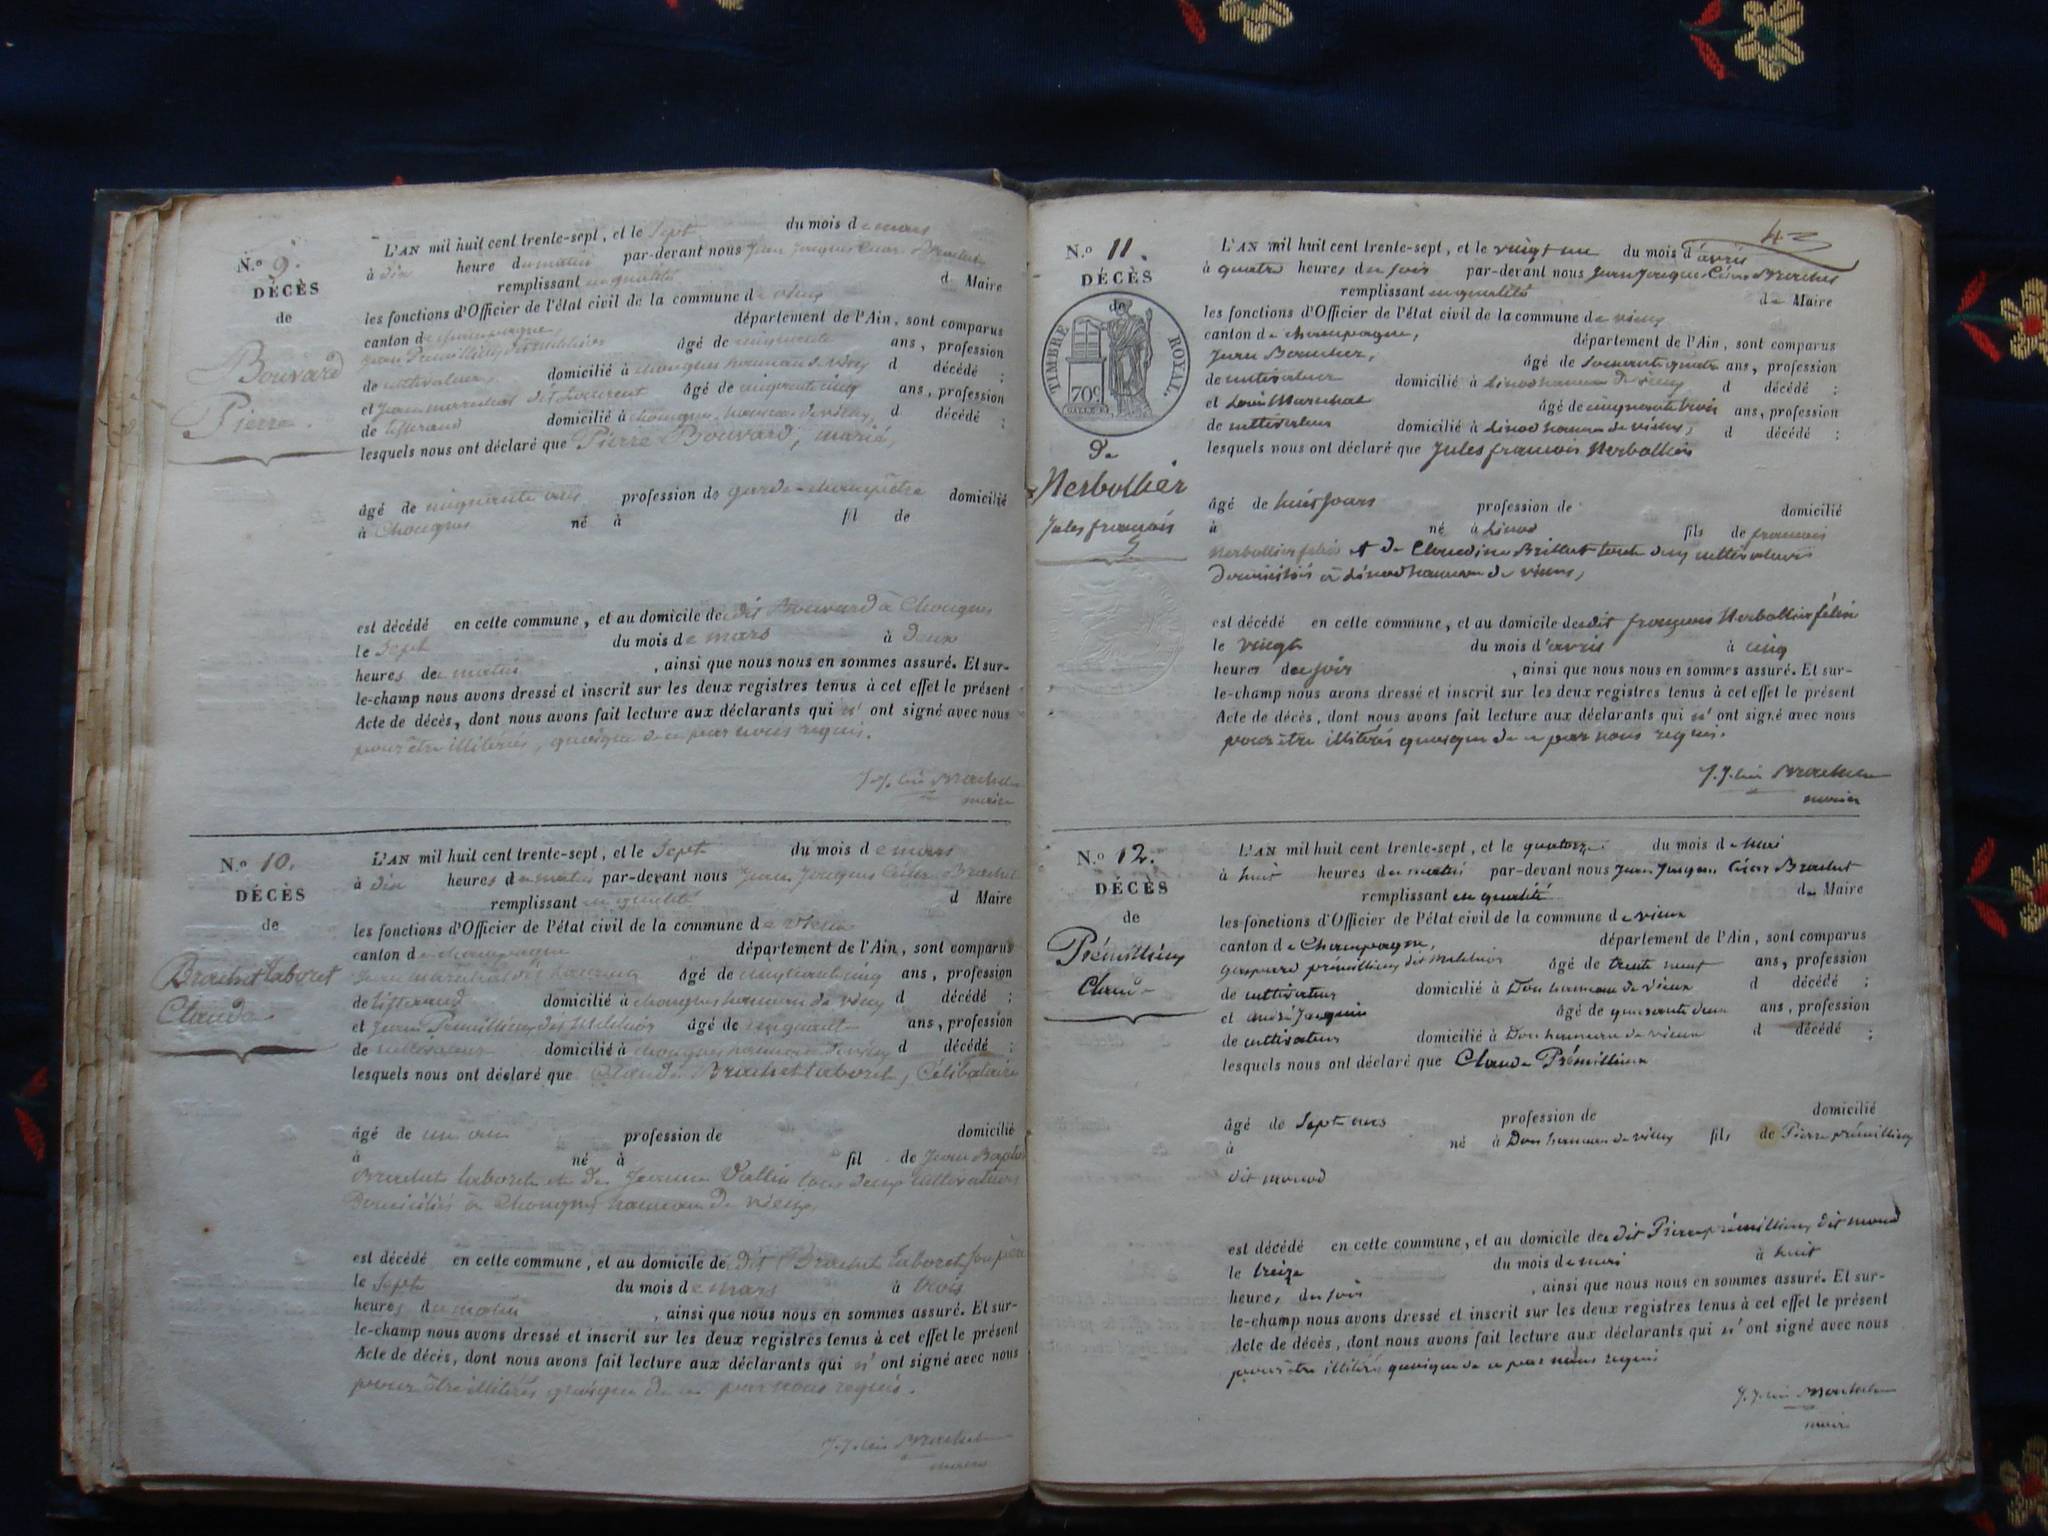 N.o 9.
DÉCÈS
de
Bouvard
Pierre.
L'AN mil huit cent trente-sept, et le Sept du mois de mars
à dix heure du matin par-devant nous Jean Jacques César Brachet
remplissant en qualité d Maire
les fonctions d'Officier de l'état civil de la commune de vieux
canton de champagne, département de l'Ain, sont comparus
jean Prémillieux dit melchior âgé de cinquante ans, profession
de cultivateur, domicilié à chongnes hameau de vieux d décédé ;
et jean marechal dit âgé de cinquante cinq ans, profession
de tisserand domicilié à chongnes, hameau de vieux, d décédé ;
lesquels nous ont déclaré que Pierre Bouvard, marié,
âgé de cinquante ans profession de garde-champêtre domicilié
à Chongnes né à fil de
est décédé en cette commune, et au domicile de dit Bouvard à Chongnes
le Sept du mois de mars à Deux
heures de matin , ainsi que nous nous en sommes assuré. Et sur-
le-champ nous avons dressé et inscrit sur les deux registres tenus à cet effet le présent
Acte de décès, dont nous avons fait lecture aux déclarants qui n' ont signé avec nous
pour être illitérés, quoique de ce par nous requis.
J. J. César Brachet
maire
N.o 10.
DÉCÈS
de
Brachet laboret
Claude
L'AN mil huit cent trente-sept, et le Sept du mois de mars
à dix heures du matin par-devant nous Jean Jacques César Brachet
remplissant en qualité d Maire
les fonctions d'Officier de l'état civil de la commune de vieux
canton de champagne département de l'Ain, sont comparus
Jean marechal dit âgé de cinquante cinq ans, profession
de tisserand domicilié à chongnes hameau de vieux d décédé ;
et jean Prémillieux dit Melchior âgé de cinquante ans, profession
de cultivateur domicilié à chongnes hameau de vieux d décédé ;
lesquels nous ont déclaré que Claude Brachet laboret, Célibataire
âgé de un an profession de domicilié
à né à fil de Jean Baptiste
Brachet laboret et de Jeanne Vallin tous deux cultivateurs
Domiciliés à Chongnes hameau de vieux,
est décédé en cette commune, et au domicile de dit Brachet laboret son père
le Sept du mois de mars à trois
heures du matin , ainsi que nous nous en sommes assuré. Et sur-
le-champ nous avons dressé et inscrit sur les deux registres tenus à cet effet le présent
Acte de décès, dont nous avons fait lecture aux déclarants qui n' ont signé avec nous
pour être illitérés quoique de ce par nous requis.
J. J. César Brachet
maire
42
N.o 11.
DÉCÈS
TIMBRE ROYAL.
70c
De
Nerbollier
Jules françois
L'AN mil huit cent trente-sept, et le vingt un du mois d'avril
à quatre heures du soir par-devant nous Jean Jacques César Brachet
remplissant en qualité de Maire
les fonctions d'Officier de l'état civil de la commune de vieux
canton de champagne, département de l'Ain, sont comparus
Jean Boucher, âgé de soixante quatre ans, profession
de cultivateur domicilié à Linod hameau De vieux d décédé ;
et Louis Maréchal âgé de cinquante trois ans, profession
de cultivateur domicilié à Linod hameau de vieux, d décédé ;
lesquels nous ont déclaré que Jules françois Nerbollier
âgé de huit jours profession de domicilié
à né à Linod fils de françois
Nerbollier félix et de Claudine Brillat tout deux cultivateurs
Domiciliés à Linod hameau de vieux,
est décédé en cette commune, et au domicile dudit françois Nerbollier félix
le vingt du mois d'avril à cinq
heures du soir , ainsi que nous nous en sommes assuré. Et sur-
le-champ nous avons dressé et inscrit sur les deux registres tenus à cet effet le présent
Acte de décès, dont nous avons fait lecture aux déclarants qui n' ont signé avec nous
pour être illitérés quoique de ce par nous requis.
J. J. César Brachet
maire
N.o 12.
DÉCÈS
de
Prémillieux
Claude
L'AN mil huit cent trente-sept, et le quatorze du mois de Mai
à huit heures du matin par-devant nous Jean Jacques César Brachet
remplissant en qualité de Maire
les fonctions d'Officier de l'état civil de la commune de vieux
canton de Champagne, département de l'Ain, sont comparus
gaspard prémillieux dit melchior âgé de trente neuf ans, profession
de cultivateur domicilié à Don hameau de vieux d décédé ;
et andré Janquin âgé de quarante deux ans, profession
de cultivateur domicilié à Don hameau de vieux d décédé ;
lesquels nous ont déclaré que Claude Prémillieux
âgé de Sept ans profession de domicilié
à né à Don hameau de vieux fils de Pierre prémillieux
dit monod
est décédé en cette commune, et au domicile de dit Pierre prémillieux dit monod
le treize du mois de mai à huit
heures du soir , ainsi que nous nous en sommes assuré. Et sur-
le-champ nous avons dressé et inscrit sur les deux registres tenus à cet effet le présent
Acte de décès, dont nous avons fait lecture aux déclarants qui n' ont signé avec nous
pour être illitérés quoique de ce par nous requis
J. J. César Brachet
maire